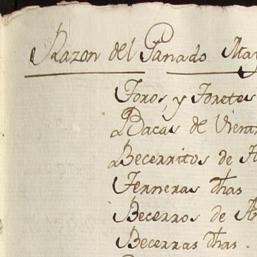 Razon del Ganado May
Toros, y Toretes
Bacas de Vient
Becerritos de A
Terneras dhas
Becerros de A
Becerras dhas.